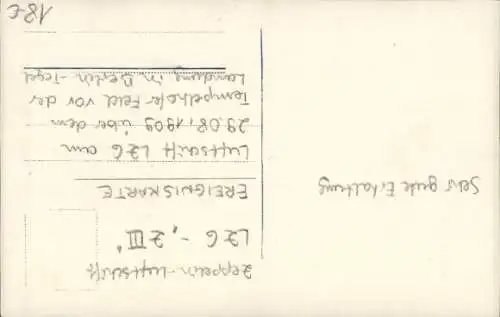 Zeppelin-Luftschiff
LZ 6 - „Z III"
EREIGNISKARTE
Luftschiff LZ 6 am
29.08.1909 über dem
Tempelhofer Feld vor der
Landung in Berlin-Tegel
Sehr gute Erhaltung
18-€